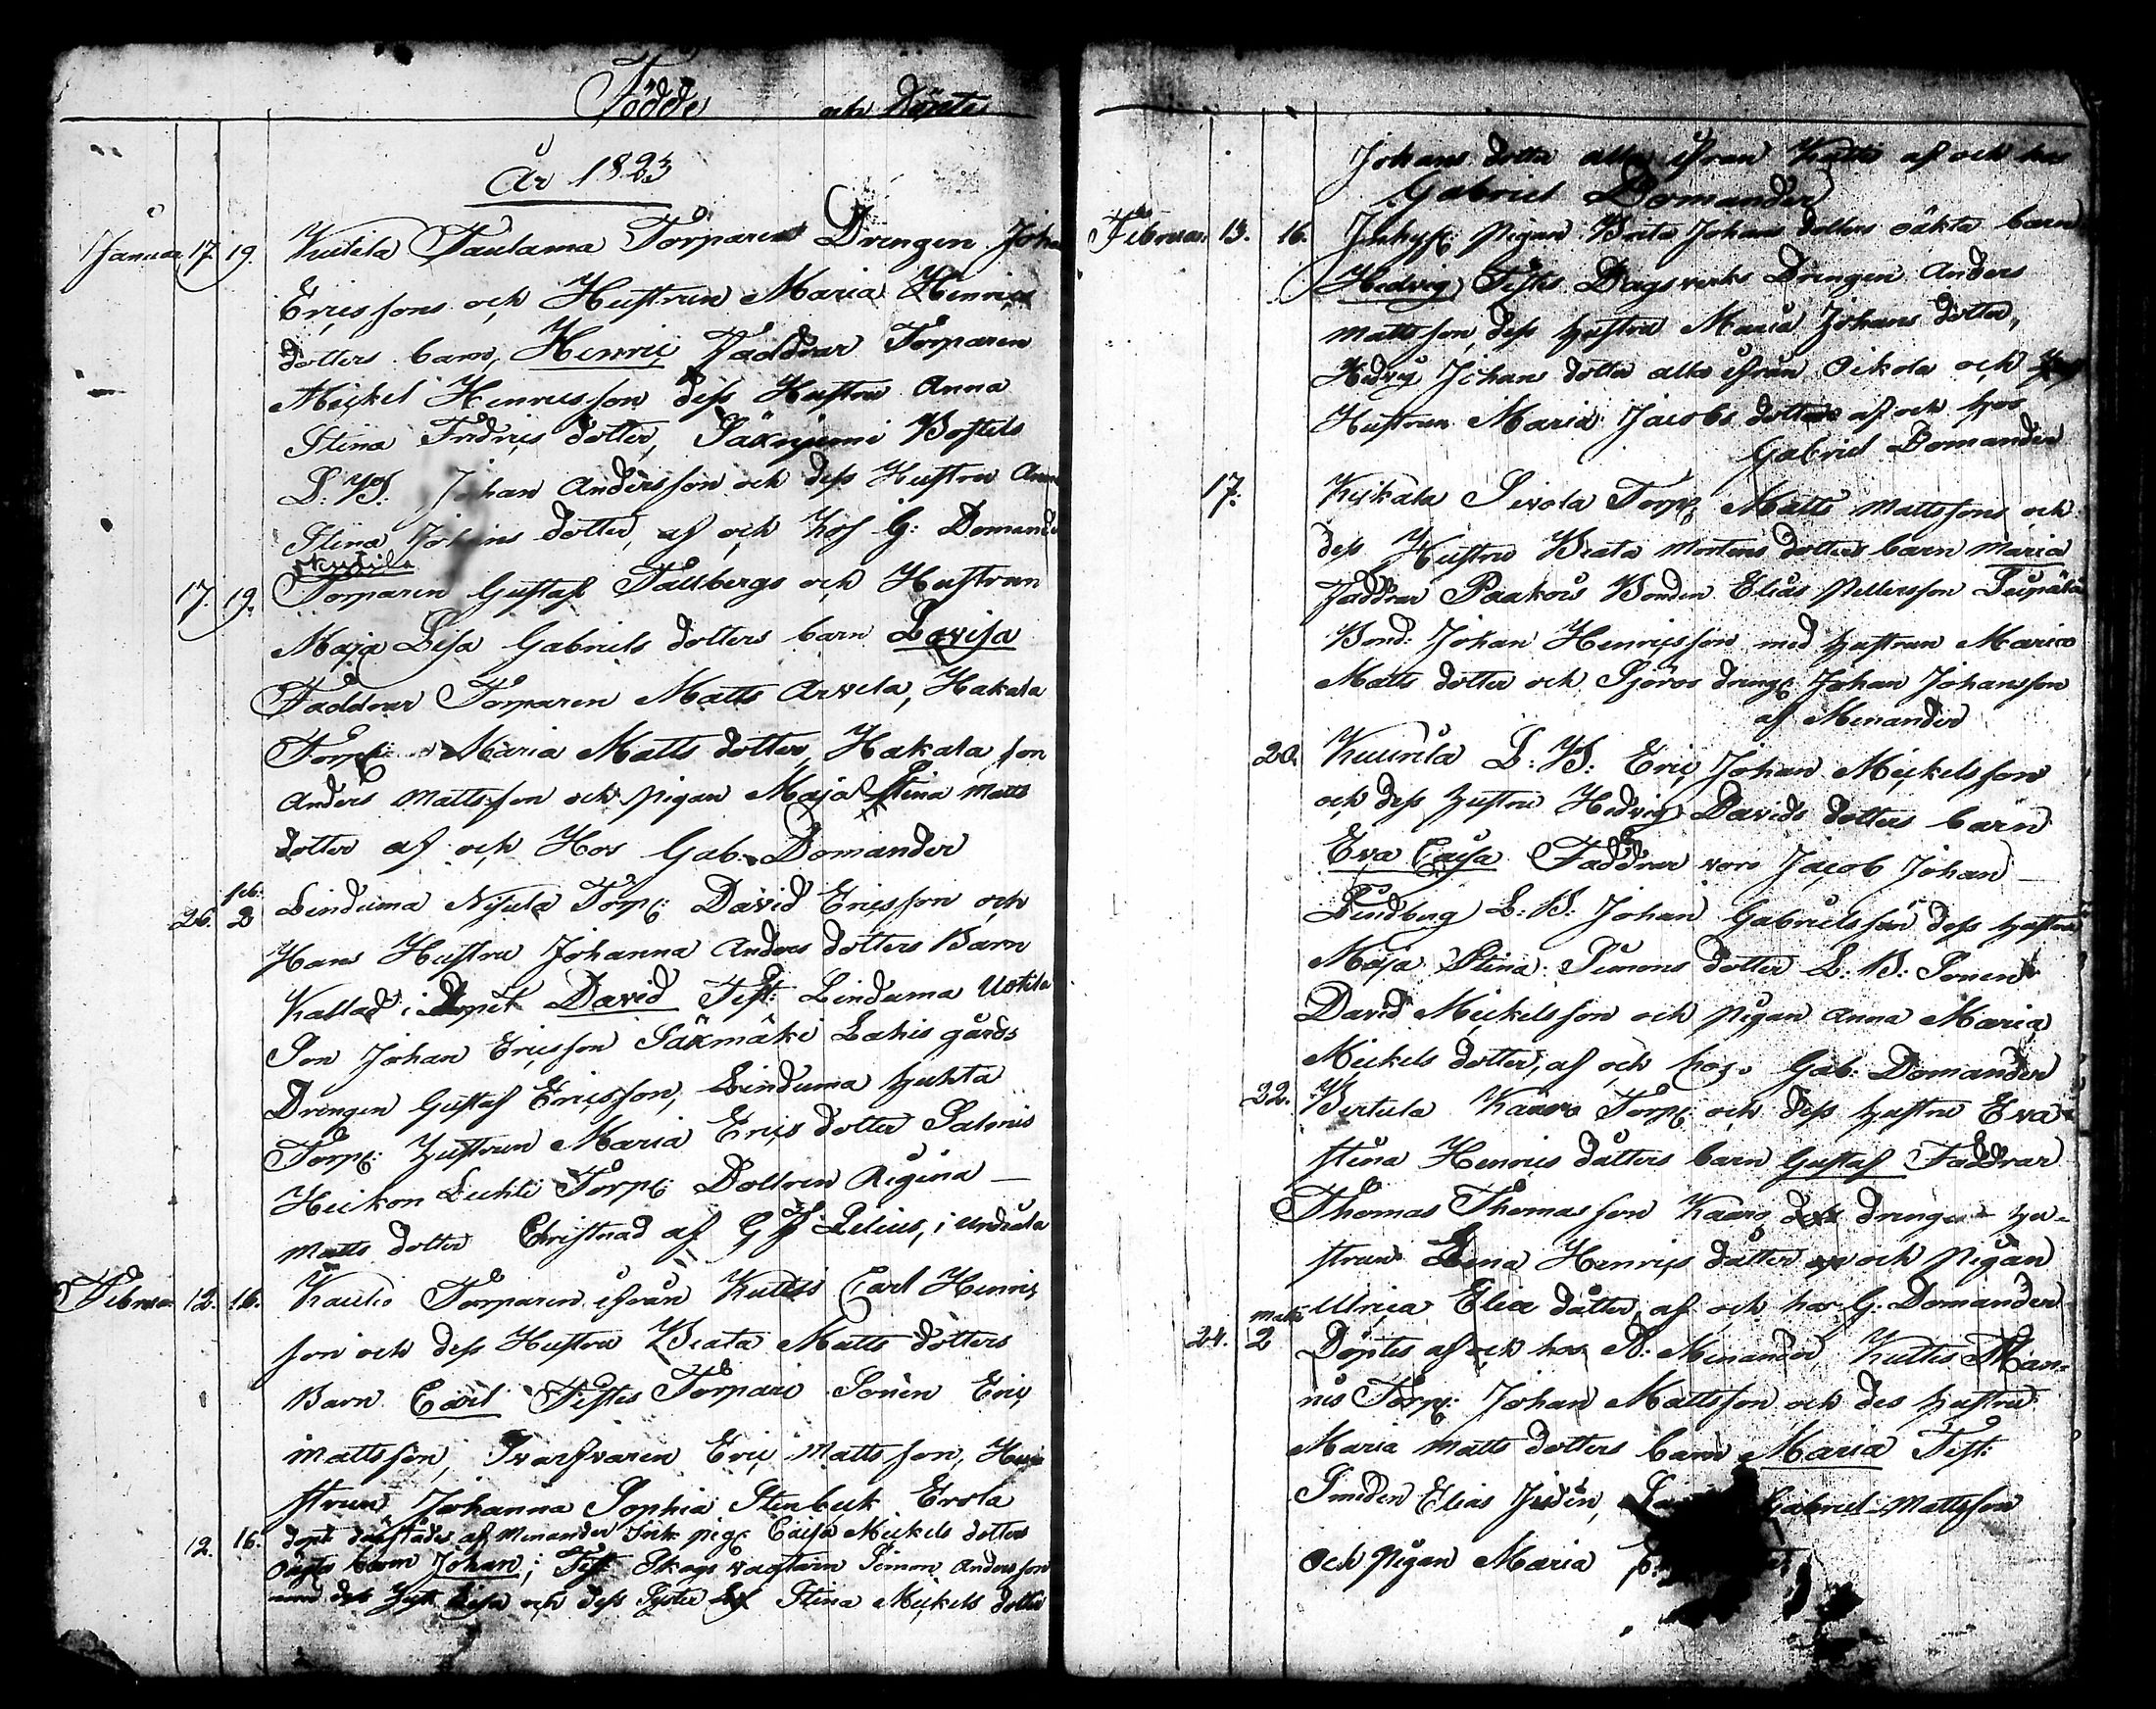 Födde och Döpte
År 1823
Januar 17. 19. Kutila Taulama Torparens Drengen Joha
Ericssons och Hustrun Maria Henrics
dotters barn, Henric Faddrar Torparen
Mickel Henricsson dess Hustru Anna
Stina Fridrics dotter, Säxnjemi Bostels
L: B: Johan Andersson och dess Hustru Anna
Stina Johans dotter, af och hos G: Domand
Kutila
17. 19. Torparen Gustaf Falsbergs och Hustrun
Maja Lisa Gabriels dotters barn Lovisa
Faddrar Torparen Matts Arvela, Hakala
Torp: Maria Matts dotter, Hakala, son
Anders Mattsson och pigan Maja Stina Matts
dotter af och Hos Gab: Domander
feb:
26. 2 Linduma Nijula Torp: David Ericsson och
Hans Hustru Johanna Anders dotters Barn
Kallad i Dopet David Test: Linduma Uotila
Son Johan Ericsson Säxmäki Lahis gårds
Drengen Gustaf Ericsson, Linduma Huhta
Torp: Hustrun Maria Erics dotter Salmis
Heikon Luhti Torp: Dottren Regina
Matts dotter Christnad af G J Lilius, i Urdiala
Februar 12. 16. Kaulio Torparen ifrån Kuttis Carl Henrics
son och dess Hustru Beata Matts dotters
Barn Carl Testes Torpare Sonen Eric
Mattsson, Svarfvaren Eric Mattsson, Hu
strun Johanna Sophia Stenbeck Erola
12. 16. döpt af Menander Inh: pig: Caisa Mickels dotters
oägta barn Johan; Test Skogs vagtarn Simon Andersson
med des Hust Lisa och dess Syster Stina Mickels dotter
Johans dotter alla ifrån Kuttis af och hos
Gabriel Domander
Februar 13. 16. Inhys: Pigan Brita Johans dotters oäkta barn
Hedvig Testes Dagsverks Drengen Anders
Mattsson, dess Hustru Maria Johans dotter,
Hedvig Johans dotter alla ifrån Oikola och
Hustrun Maria Jacobs dotter af och hos
Gabriel Domander
17. Kijkala Sivola Torp: Matts Mattssons och
dess Hustru Beata Mortens dotters barn Maria
Faddrar Paakois Bonden Elias Pettersson
Bond: Johan Henricsson med Hustrun Maria
Matts dotter och Sjöros dreng: Johan Johansson
af Menander
20. Kuurila L: B: Eric Johan Mickelsson
och dess Hustru Hedvig Davids dotters barn
Eva Caisa Faddrar voro Jacob Johan
Lindberg L: B: Johan Gabrielsson dess Hustru
Maja Stina Simons dotter L: B: Sonen
David Mickelsson och Pigan Anna Maria
Mickels dotter, af och hos Gab: Domander
22. Bertula Kaaro Torp: och dess Hustru Eva
Stina Henrics dåtters barn Gustaf Faddrar
Thomas Thomasson Kaaro drengen Hu-
strun Lena Henrics dåtter och Pigan
Ulrica Elea dåtter, af och hos G: Domander
Mats
24. 2 Döptes af och hos A: Menander Kuttis Man-
nis Torp: Johan Mattsson och des Hustru
Maria Matts dotters barn Maria Test:
Smeden Elias Jiden, Gabriel Mattsson
och Pigan Maria